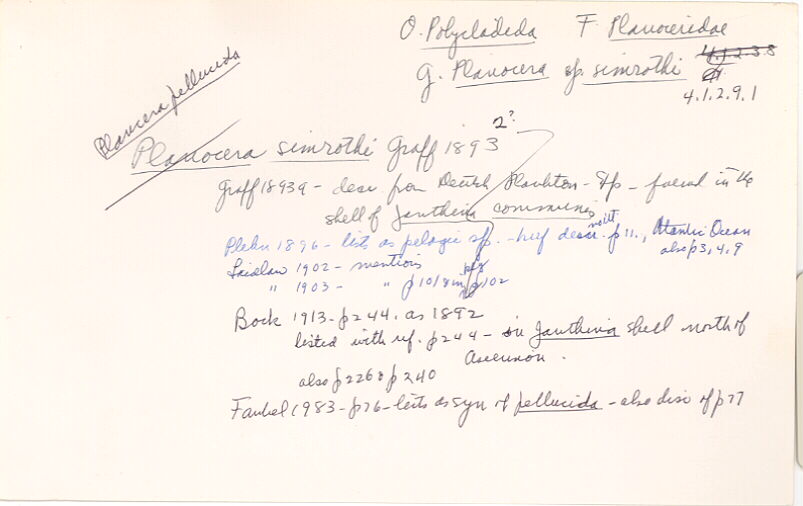 O. Polycladeda F. Planoceridae
G. Planocera sp. simrothi 4.1.2.3.8
4.1.2.9.1
Planocera pellucida
Planocera simrothi Graff 1893 2?
Graff 1893a - descr. from Deutsh Plankton - Exp - found in the
shell of Janthina communis
Plehn 1896 - lists as pelagic sp. - brief descr. no ill. p 11., Atlantic Ocean
also p 3, 4, 9
Laidlaw 1902 - mentions
" 1903 - " p 10/8 in p 102
Bock 1913 - p 244. as 1892
listed with ref. p 244 - in Janthina shell north of
Ascension.
also p 226 & p 240
Faubel 1983 - p 76 - lists as syn of pellucida - also disc of p 77